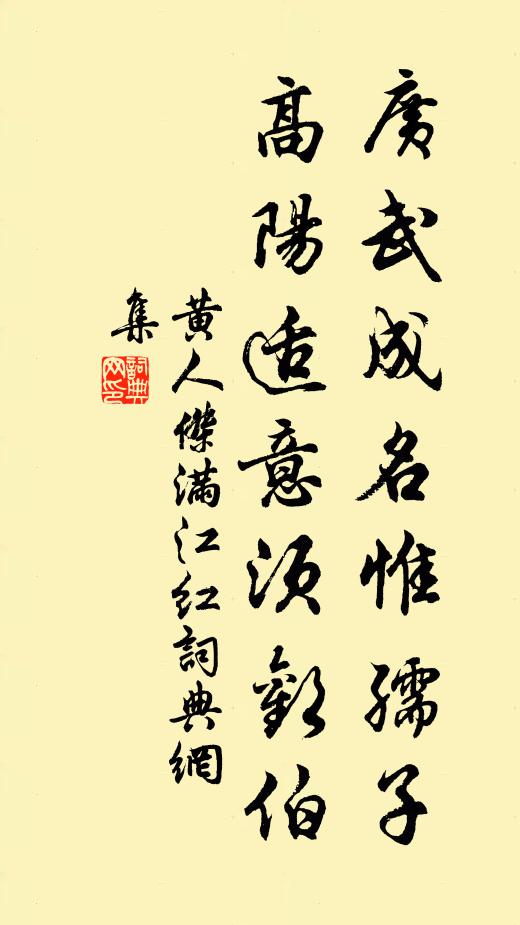 廣武成名惟孺子
高陽适意須歡伯
黄人傑滿江紅詞典網
集
詞典网印